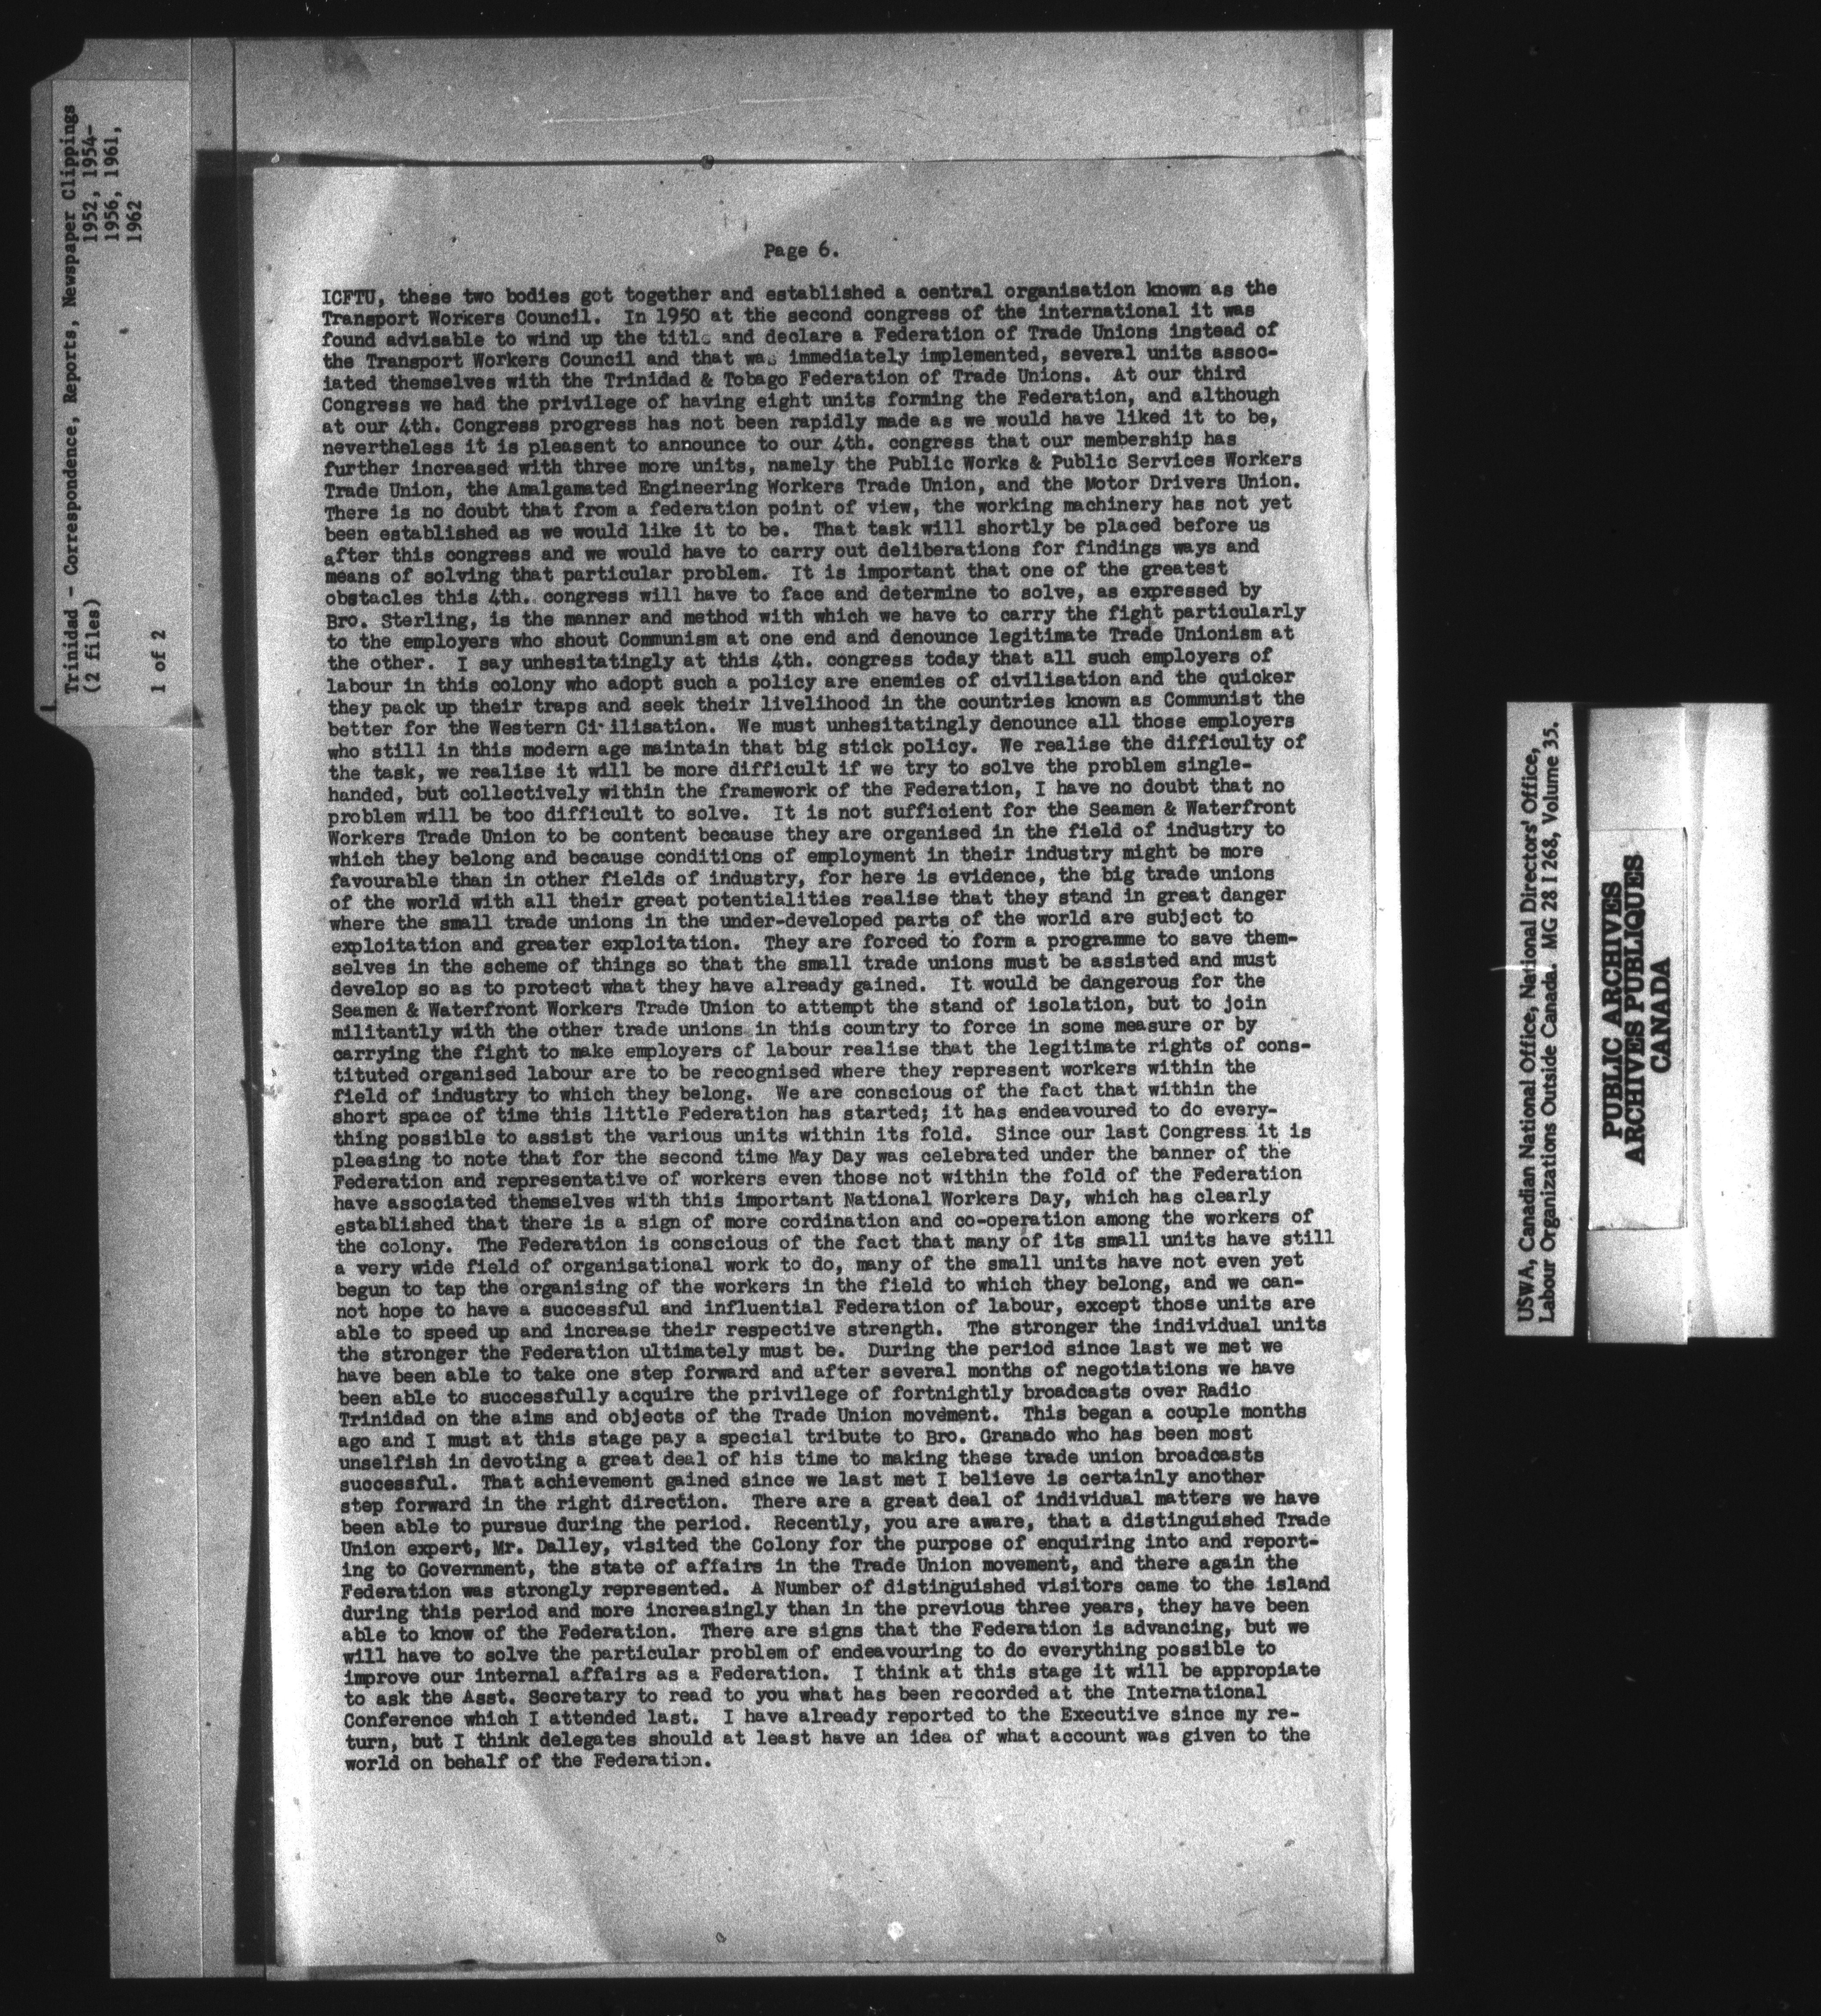 Trinidad - Correspondence, Reports, Newspaper Clippings
(2 files) 1952, 1954-
1956, 1961,
1962
1 of 2
Page 6.
ICFTU, these two bodies got together and established a central organisation known as the
Transport Workers Council. In 1950 at the second congress of the international it was
found advisable to wind up the title and declare a Federation of Trade Unions instead of
the Transport Workers Council and that was immediately implemented, several units assoc-
iated themselves with the Trinidad & Tobago Federation of Trade Unions. At our third
Congress we had the privilege of having eight units forming the Federation, and although
at our 4th. Congress progress has not been rapidly made as we would have liked it to be,
nevertheless it is pleasent to announce to our 4th. congress that our membership has
further increased with three more units, namely the Public Works & Public Services Workers
Trade Union, the Amalgamated Engineering Workers Trade Union, and the Motor Drivers Union.
There is no doubt that from a federation point of view, the working machinery has not yet
been established as we would like it to be. That task will shortly be placed before us
after this congress and we would have to carry out deliberations for findings ways and
means of solving that particular problem. It is important that one of the greatest
obstacles this 4th. congress will have to face and determine to solve, as expressed by
Bro. Sterling, is the manner and method with which we have to carry the fight particularly
to the employers who shout Communism at one end and denounce legitimate Trade Unionism at
the other. I say unhesitatingly at this 4th. congress today that all such employers of
labour in this colony who adopt such a policy are enemies of civilisation and the quicker
they pack up their traps and seek their livelihood in the countries known as Communist the
better for the Western Civilisation. We must unhesitatingly denounce all those employers
who still in this modern age maintain that big stick policy. We realise the difficulty of
the task, we realise it will be more difficult if we try to solve the problem single-
handed, but collectively within the framework of the Federation, I have no doubt that no
problem will be too difficult to solve. It is not sufficient for the Seamen & Waterfront
Workers Trade Union to be content because they are organised in the field of industry to
which they belong and because conditions of employment in their industry might be more
favourable than in other fields of industry, for here is evidence, the big trade unions
of the world with all their great potentialities realise that they stand in great danger
where the small trade unions in the under-developed parts of the world are subject to
exploitation and greater exploitation. They are forced to form a programme to save them-
selves in the scheme of things so that the small trade unions must be assisted and must
develop so as to protect what they have already gained. It would be dangerous for the
Seamen & Waterfront Workers Trade Union to attempt the stand of isolation, but to join
militantly with the other trade unions in this country to force in some measure or by
carrying the fight to make employers of labour realise that the legitimate rights of cons-
tituted organised labour are to be recognised where they represent workers within the
field of industry to which they belong. We are conscious of the fact that within the
short space of time this little Federation has started; it has endeavoured to do every-
thing possible to assist the various units within its fold. Since our last Congress it is
pleasing to note that for the second time May Day was celebrated under the banner of the
Federation and representative of workers even those not within the fold of the Federation
have associated themselves with this important National Workers Day, which has clearly
established that there is a sign of more cordination and co-operation among the workers of
the colony. The Federation is conscious of the fact that many of its small units have still
a very wide field of organisational work to do, many of the small units have not even yet
begun to tap the organising of the workers in the field to which they belong, and we can-
not hope to have a successful and influential Federation of labour, except those units are
able to speed up and increase their respective strength. The stronger the individual units
the stronger the Federation ultimately must be. During the period since last we met we
have been able to take one step forward and after several months of negotiations we have
been able to successfully acquire the privilege of fortnightly broadcasts over Radio
Trinidad on the aims and objects of the Trade Union movement. This began a couple months
ago and I must at this stage pay a special tribute to Bro. Granado who has been most
unselfish in devoting a great deal of his time to making these trade union broadcasts
successful. That achievement gained since we last met I believe is certainly another
step forward in the right direction. There are a great deal of individual matters we have
been able to pursue during the period. Recently, you are aware, that a distinguished Trade
Union expert, Mr. Dalley, visited the Colony for the purpose of enquiring into and report-
ing to Government, the state of affairs in the Trade Union movement, and there again the
Federation was strongly represented. A Number of distinguished visitors came to the island
during this period and more increasingly than in the previous three years, they have been
able to know of the Federation. There are signs that the Federation is advancing, but we
will have to solve the particular problem of endeavouring to do everything possible to
improve our internal affairs as a Federation. I think at this stage it will be appropiate
to ask the Asst. Secretary to read to you what has been recorded at the International
Conference which I attended last. I have already reported to the Executive since my re-
turn, but I think delegates should at least have an idea of what account was given to the
world on behalf of the Federation.
USWA, Canadian National Office, National Directors' Office,
Labour Organizations Outside Canada. MG 28 I 268, Volume 35.
PUBLIC ARCHIVES
ARCHIVES PUBLIQUES
CANADA